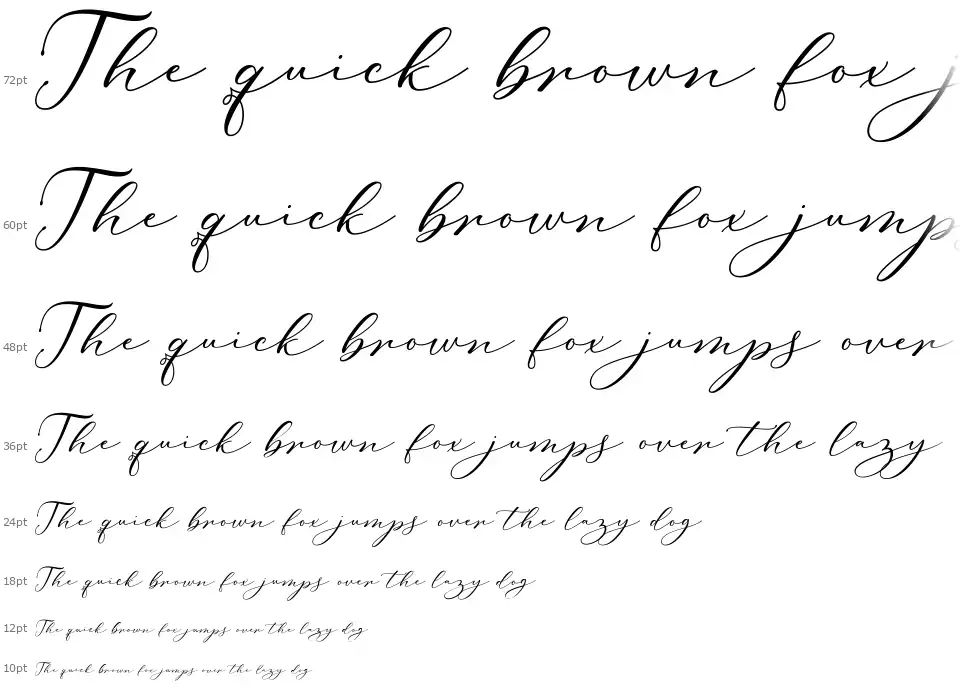 72pt The quick brown fox j
60pt The quick brown fox jump
48pt The quick brown fox jumps over
36pt The quick brown fox jumps over the lazy
24pt The quick brown fox jumps over the lazy dog
18pt The quick brown fox jumps over the lazy dog
12pt The quick brown fox jumps over the lazy dog
10pt The quick brown fox jumps over the lazy dog